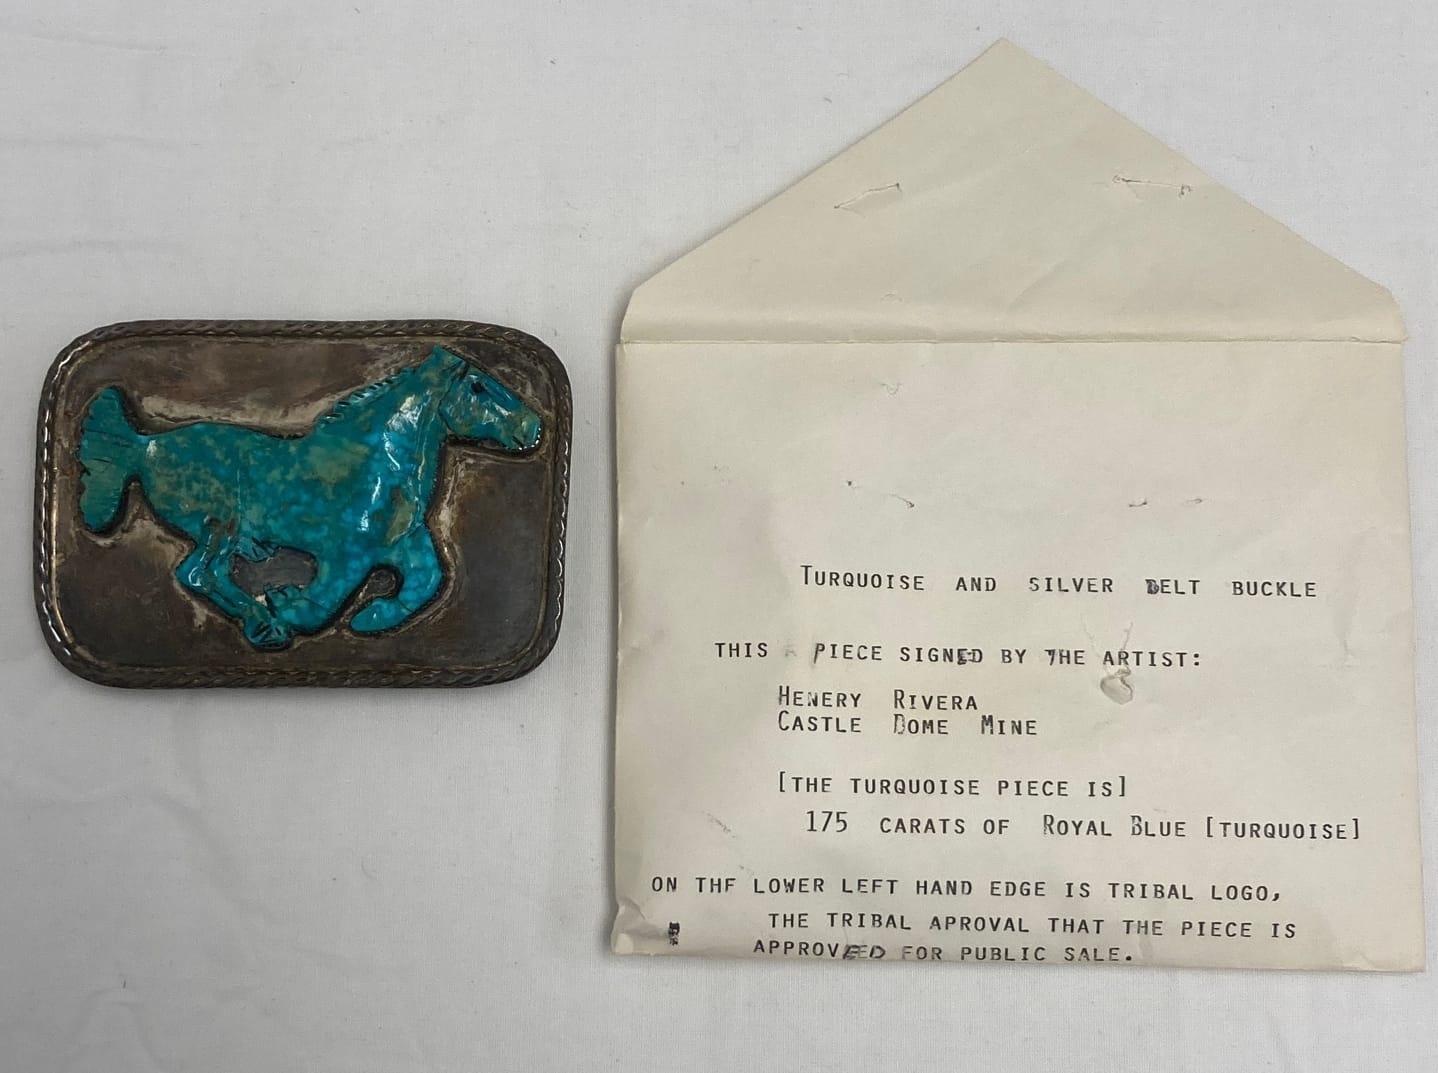 TURQUOISE AND SILVER BELT BUCKLE
THIS PIECE SIGNED BY THE ARTIST:
HENERY RIVERA
CASTLE DOME MINE
[THE TURQUOISE PIECE IS]
175 CARATS OF ROYAL BLUE [TURQUOISE]
ON THE LOWER LEFT HAND EDGE IS TRIBAL LOGO,
THE TRIBAL APROVAL THAT THE PIECE IS
APPROVEED FOR PUBLIC SALE.